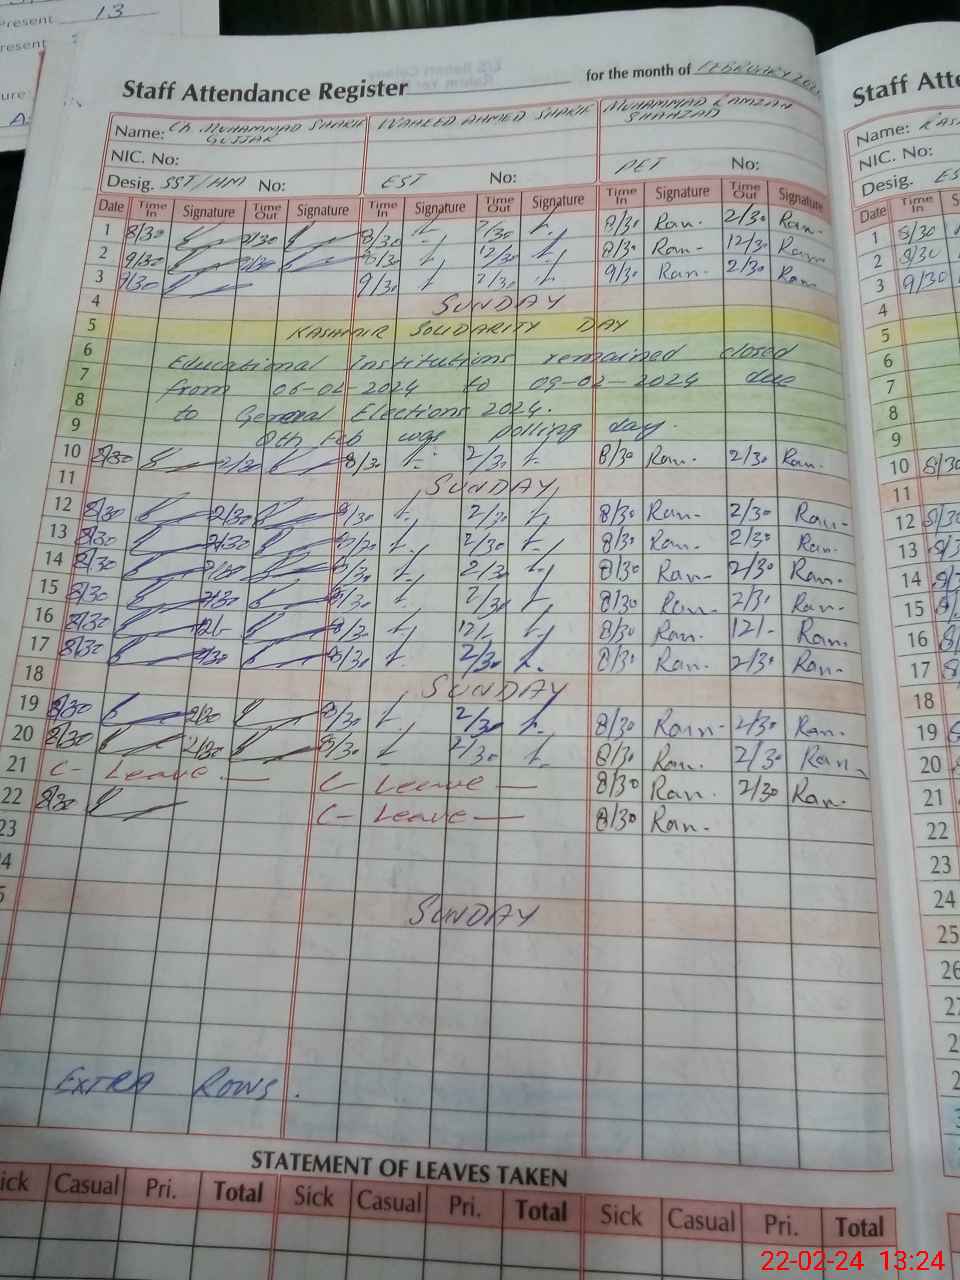 Present 13
Present
Staff Attendance Register for the month of FEBRUARY
Name: Ch. MUHAMMAD SHARIF GUJJAR WAHEED AHMED SHAKIR MUHAMMAD RAMZAN SHAHZAD
NIC. No:
Desig. SST/HM No: EST No: PET No:
Date Time In Signature Time Out Signature Time In Signature Time Out Signature Time In Signature Time Out Signature
1 8/30 2/30 8/30 2/30 8/30 Ran. 2/30 Ran.
2 12/30 8/30 Ran- 12/30 Ran
3 9/30 9/30 2/30 9/30 Ran- 2/30 Ran
4 SUNDAY
5 KASHMIR SOLIDARITY DAY
6 Educational Institutions remained closed
7 from 06-02-2024 to 09-02-2024 due
8 to General Elections 2024.
9 8th Feb was polling day.
10 8/30 2/30 8/30 2/30 8/30 Ran. 2/30 Ran.
11 SUNDAY
12 8/30 2/30 8/30 Ran. 2/30 Ran-
13 8/30 2/30 2/30 8/30 Ran. 2/30 Ran.
14 8/30 8/30 Ran- 2/30 Ran.
15 8/30 2/30 8/30 2/30 8/30 Ran. 2/30 Ran-
16 8/30 12/- 12/- 8/30 Ran. 12/- Ran.
17 8/30 2/30 8/30 2/30 8/30 Ran. 2/30 Ran-
18 SUNDAY
19 8/30 2/30 8/30 2/30 8/30 Ran- 2/30 Ran.
20 8/30 2/30 8/30 2/30 8/30 Ran. 2/30 Ran.
21 C- Leave. — C- Leave — 8/30 Ran. 2/30 Ran.
22 8/30 C- Leave — 8/30 Ran.
23
SUNDAY
EXTRA ROWS.
STATEMENT OF LEAVES TAKEN
Sick Casual Pri. Total Sick Casual Pri. Total Sick Casual Pri. Total
Staff Atte
Name:
NIC. No:
Desig. ES
Date Time In
1 8/30
2 8/30
3 9/30
4
5
6
7
8
9
10 8/30
11
12 8/30
13
14
15
16
17
18
19
20
21
22
23
24
25
26
22-02-24 13:24